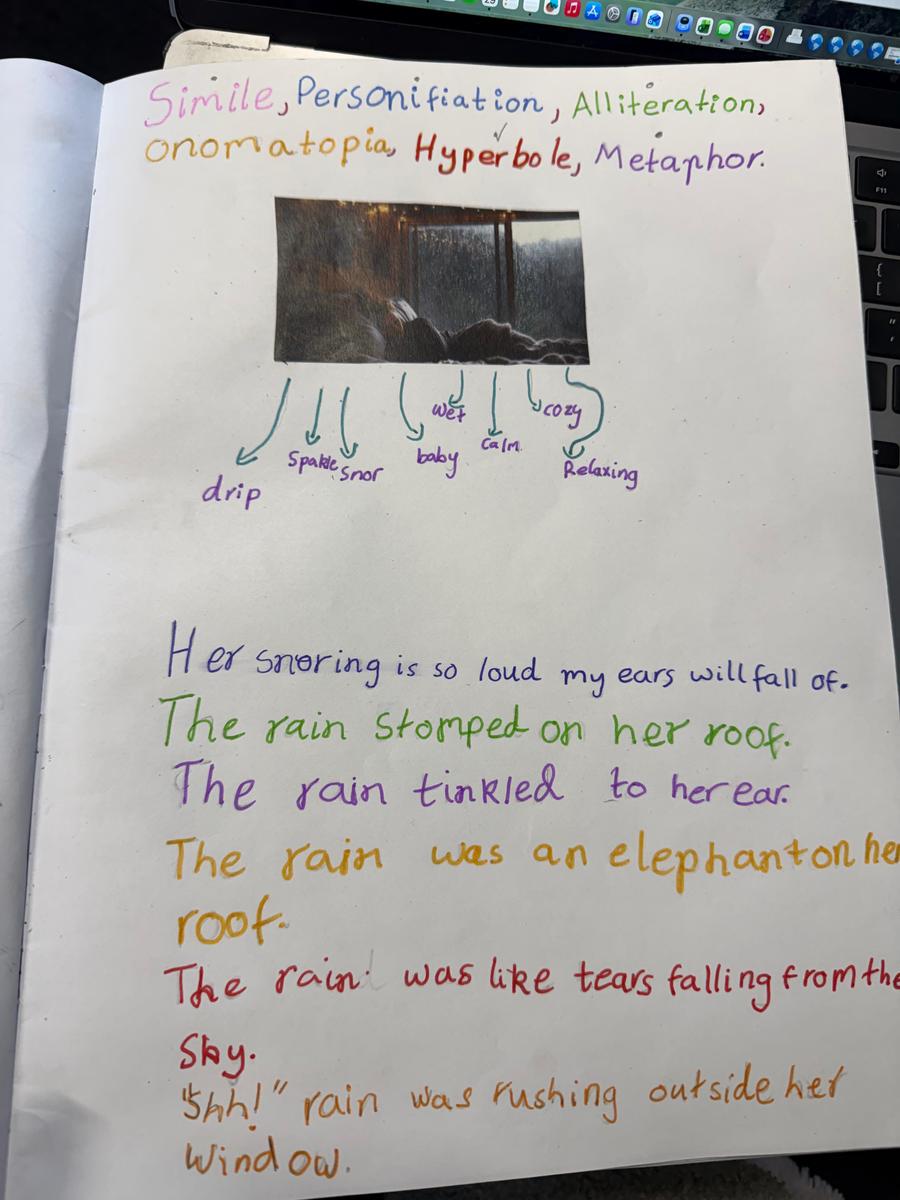 Simile, Personifiation, Alliteration,
onomatopia, Hyperbole, Metaphor.
wet
cozy
drip
Spakle
Snor
baby
Calm
Relaxing
Her snoring is so loud my ears will fall of.
The rain stomped on her roof.
The rain tinkled to her ear.
The rain was an elephant on her
roof.
The rain was like tears falling from the
Sky.
"Shh!" rain was rushing outside her
window.
F11
{
[
"
'